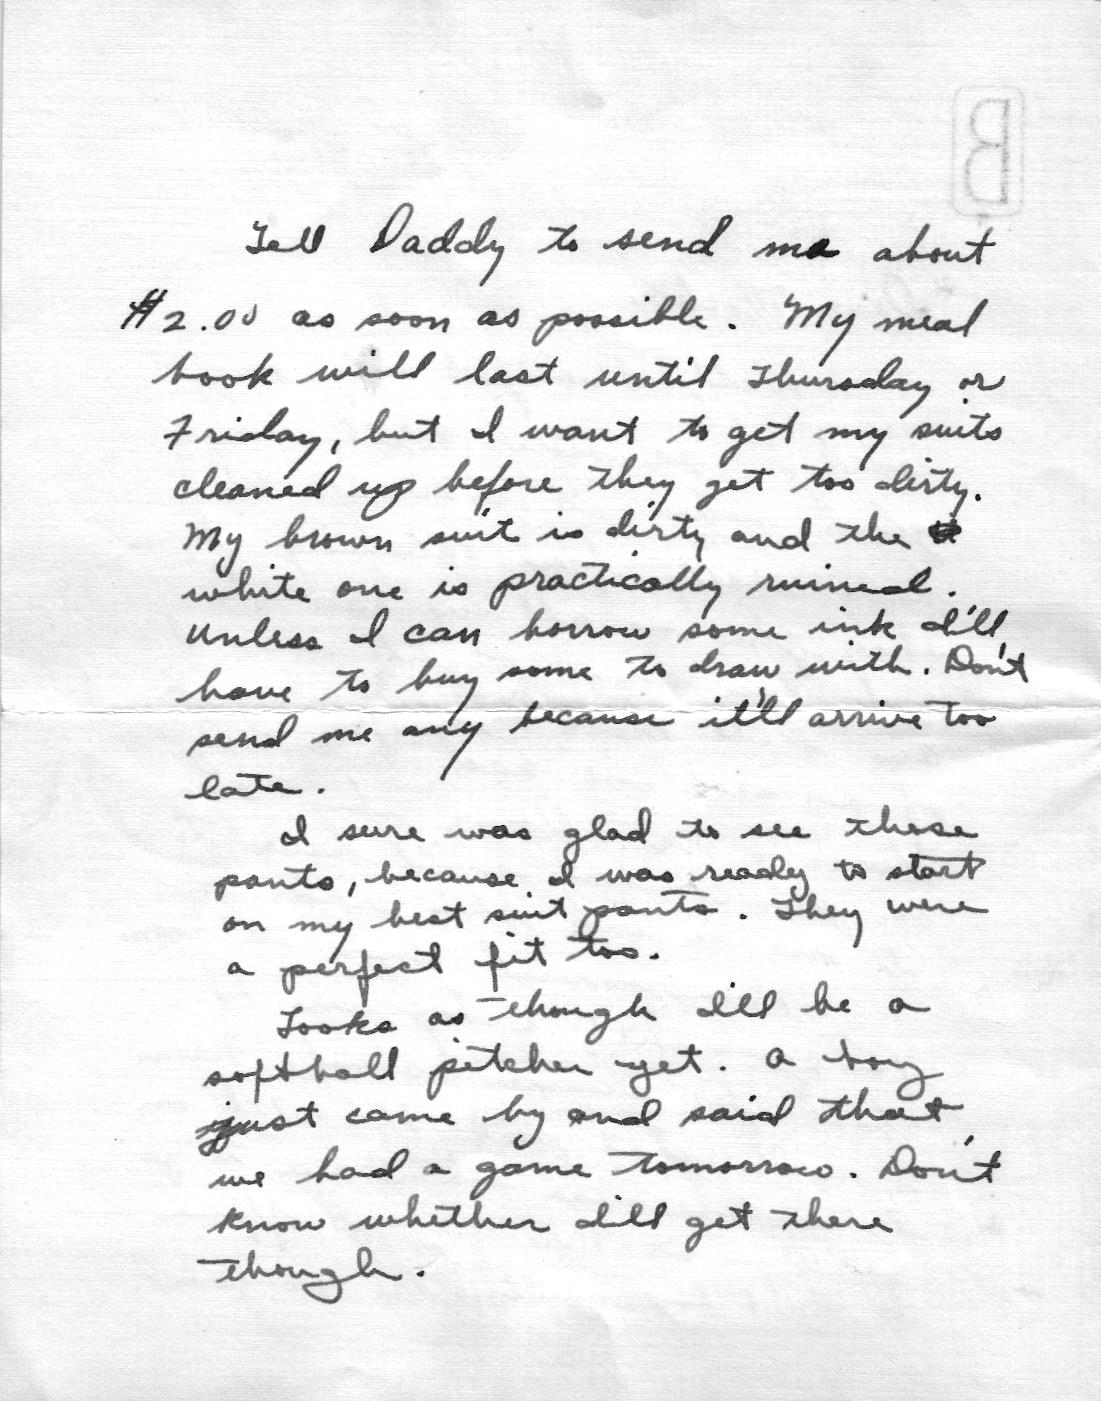 Tell Daddy to send me about
$2.00 as soon as possible. My meal
book will last until Thursday or
Friday, but I want to get my suits
cleaned up before they get too dirty.
My brown suit is dirty and the
white one is practically ruined.
Unless I can borrow some ink I'll
have to buy some to draw with. Don't
send me any because it'll arrive too
late.
I sure was glad to see those
pants, because I was ready to start
on my best suit pants. They were
a perfect fit too.
Looks as though I'll be a
softball pitcher yet. A boy
just came by and said that
we had a game tomorrow. Don't
know whether I'll get there
though.